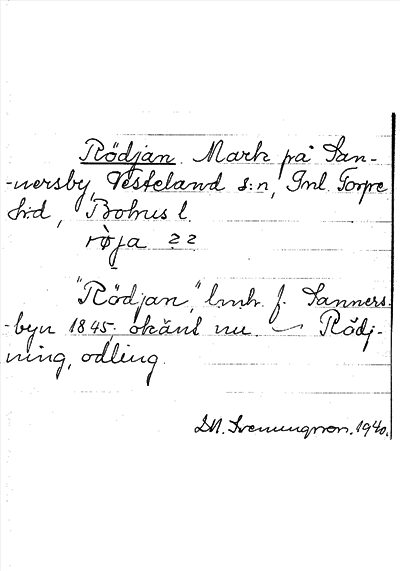 Rödjan. Mark på San-
-nersby, Vesteland s:n, Inl. Torpe
h:d, Bohus l.
röja 22
"Rödjan," lmh. f. Sanners-
-byn 1845, okänt nu. — Rödj-
ning, odling.
Sveningson. 1940.